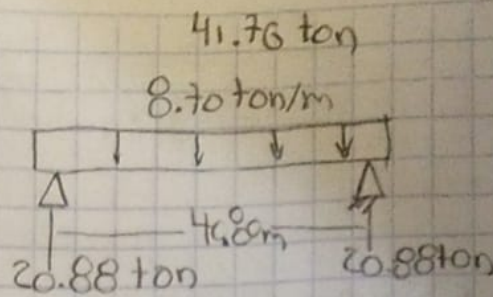 41.76 ton
8.70 ton/m
4.80m
20.88 ton
20.88ton